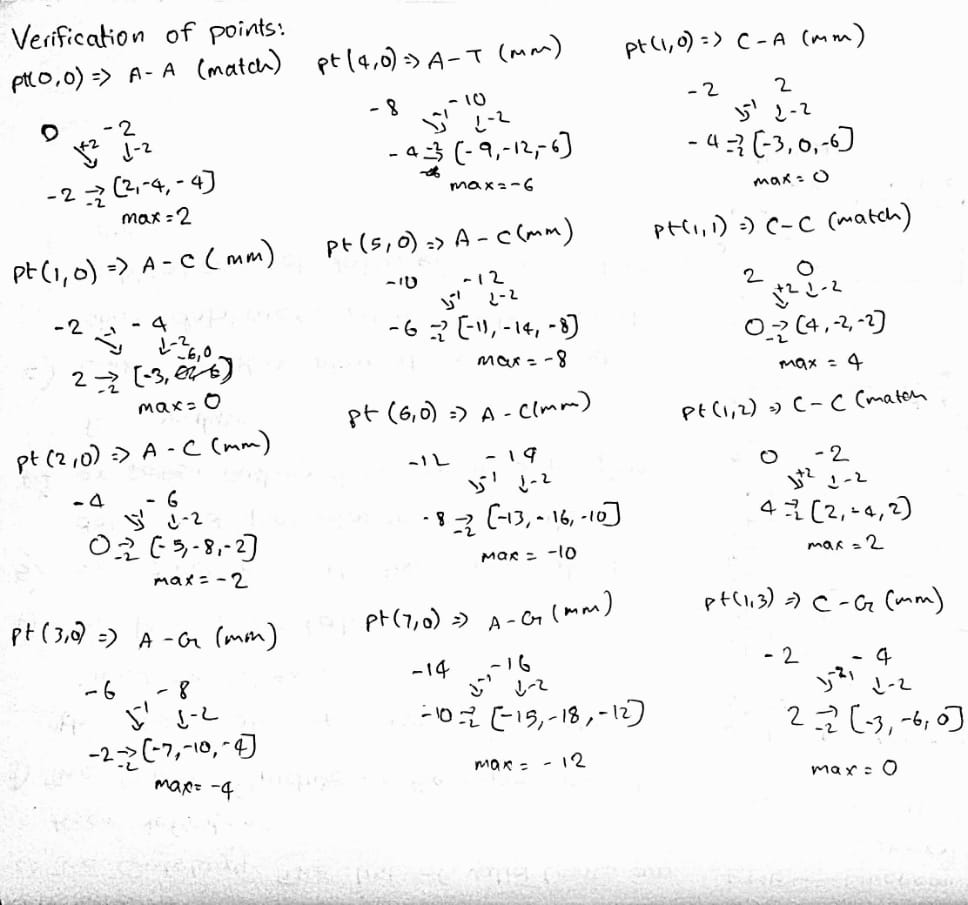 Verification of points:
pt(0,0) => A-A (match)
0 -2
+2 ↓-2
-2 → -2 [2,-4,-4]
max=2
pt(1,0) => A-C (mm)
-2 -4
-1 ↓-2
-6,0
2 → -2 [-3,
max=0
pt(2,0) => A-C (mm)
-4 -6
-1 ↓-2
0 → -2 [-5,-8,-2]
max=-2
pt(3,0) => A-G (mm)
-6 -8
-1 ↓-2
-2 → -2 [-7,-10,-4]
max=-4
pt(4,0) => A-T (mm)
-8 -10
-1 ↓-2
-4 → [-9,-12,-6]
max=-6
pt(5,0) => A-C (mm)
-10 -12
-1 ↓-2
-6 → -2 [-11,-14,-8]
max=-8
pt(6,0) => A-C (mm)
-12 -14
-1 ↓-2
-8 → -2 [-13,-16,-10]
max=-10
pt(7,0) => A-G (mm)
-14 -16
-1 ↓-2
-10 → -2 [-15,-18,-12]
max=-12
pt(1,0) => C-A (mm)
-2 2
-1 ↓-2
-4 → -2 [-3,0,-6]
max=0
pt(1,1) => C-C (match)
2 0
+2 ↓-2
0 → -2 [4,-2,-2]
max=4
pt(1,2) => C-C (match
0 -2
+2 ↓-2
4 → -2 [2,-4,2]
max=2
pt(1,3) => C-G (mm)
-2 -4
↓-2
2 → -2 [-3,-6,0]
max=0